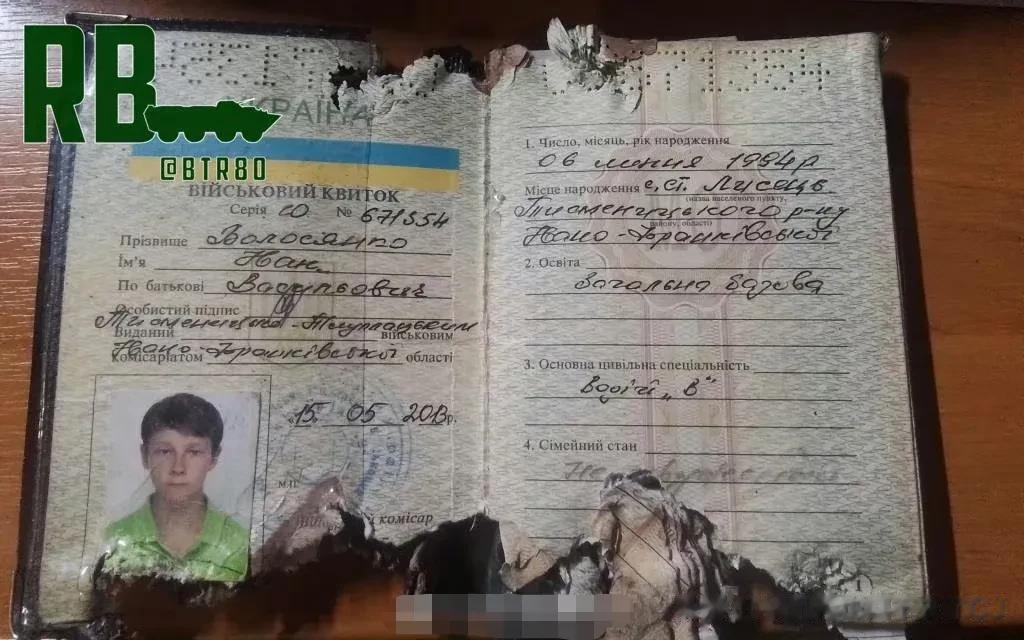 RB
@BTR80
УКРАЇНА
ВІЙСЬКОВИЙ КВИТОК
Серія СО № 671354
Прізвище Волосянко
Ім'я Іван
По батькові Васильович
Особистий підпис
Тисменицько-Тлумацьким
Виданий військовим
Івано-Франківської
комісаріатом області
«15» 05 2013р.
М.П.
комісар
1. Число, місяць, рік народження
06 липня 1994р
Місце народження с. Ст. Лисець
(назва населеного пункту,
Тисменицького р-ну
району, області)
Івано-Франківської
2. Освіта
Загальна базова
3. Основна цивільна спеціальність
Водій „В"
4. Сімейний стан